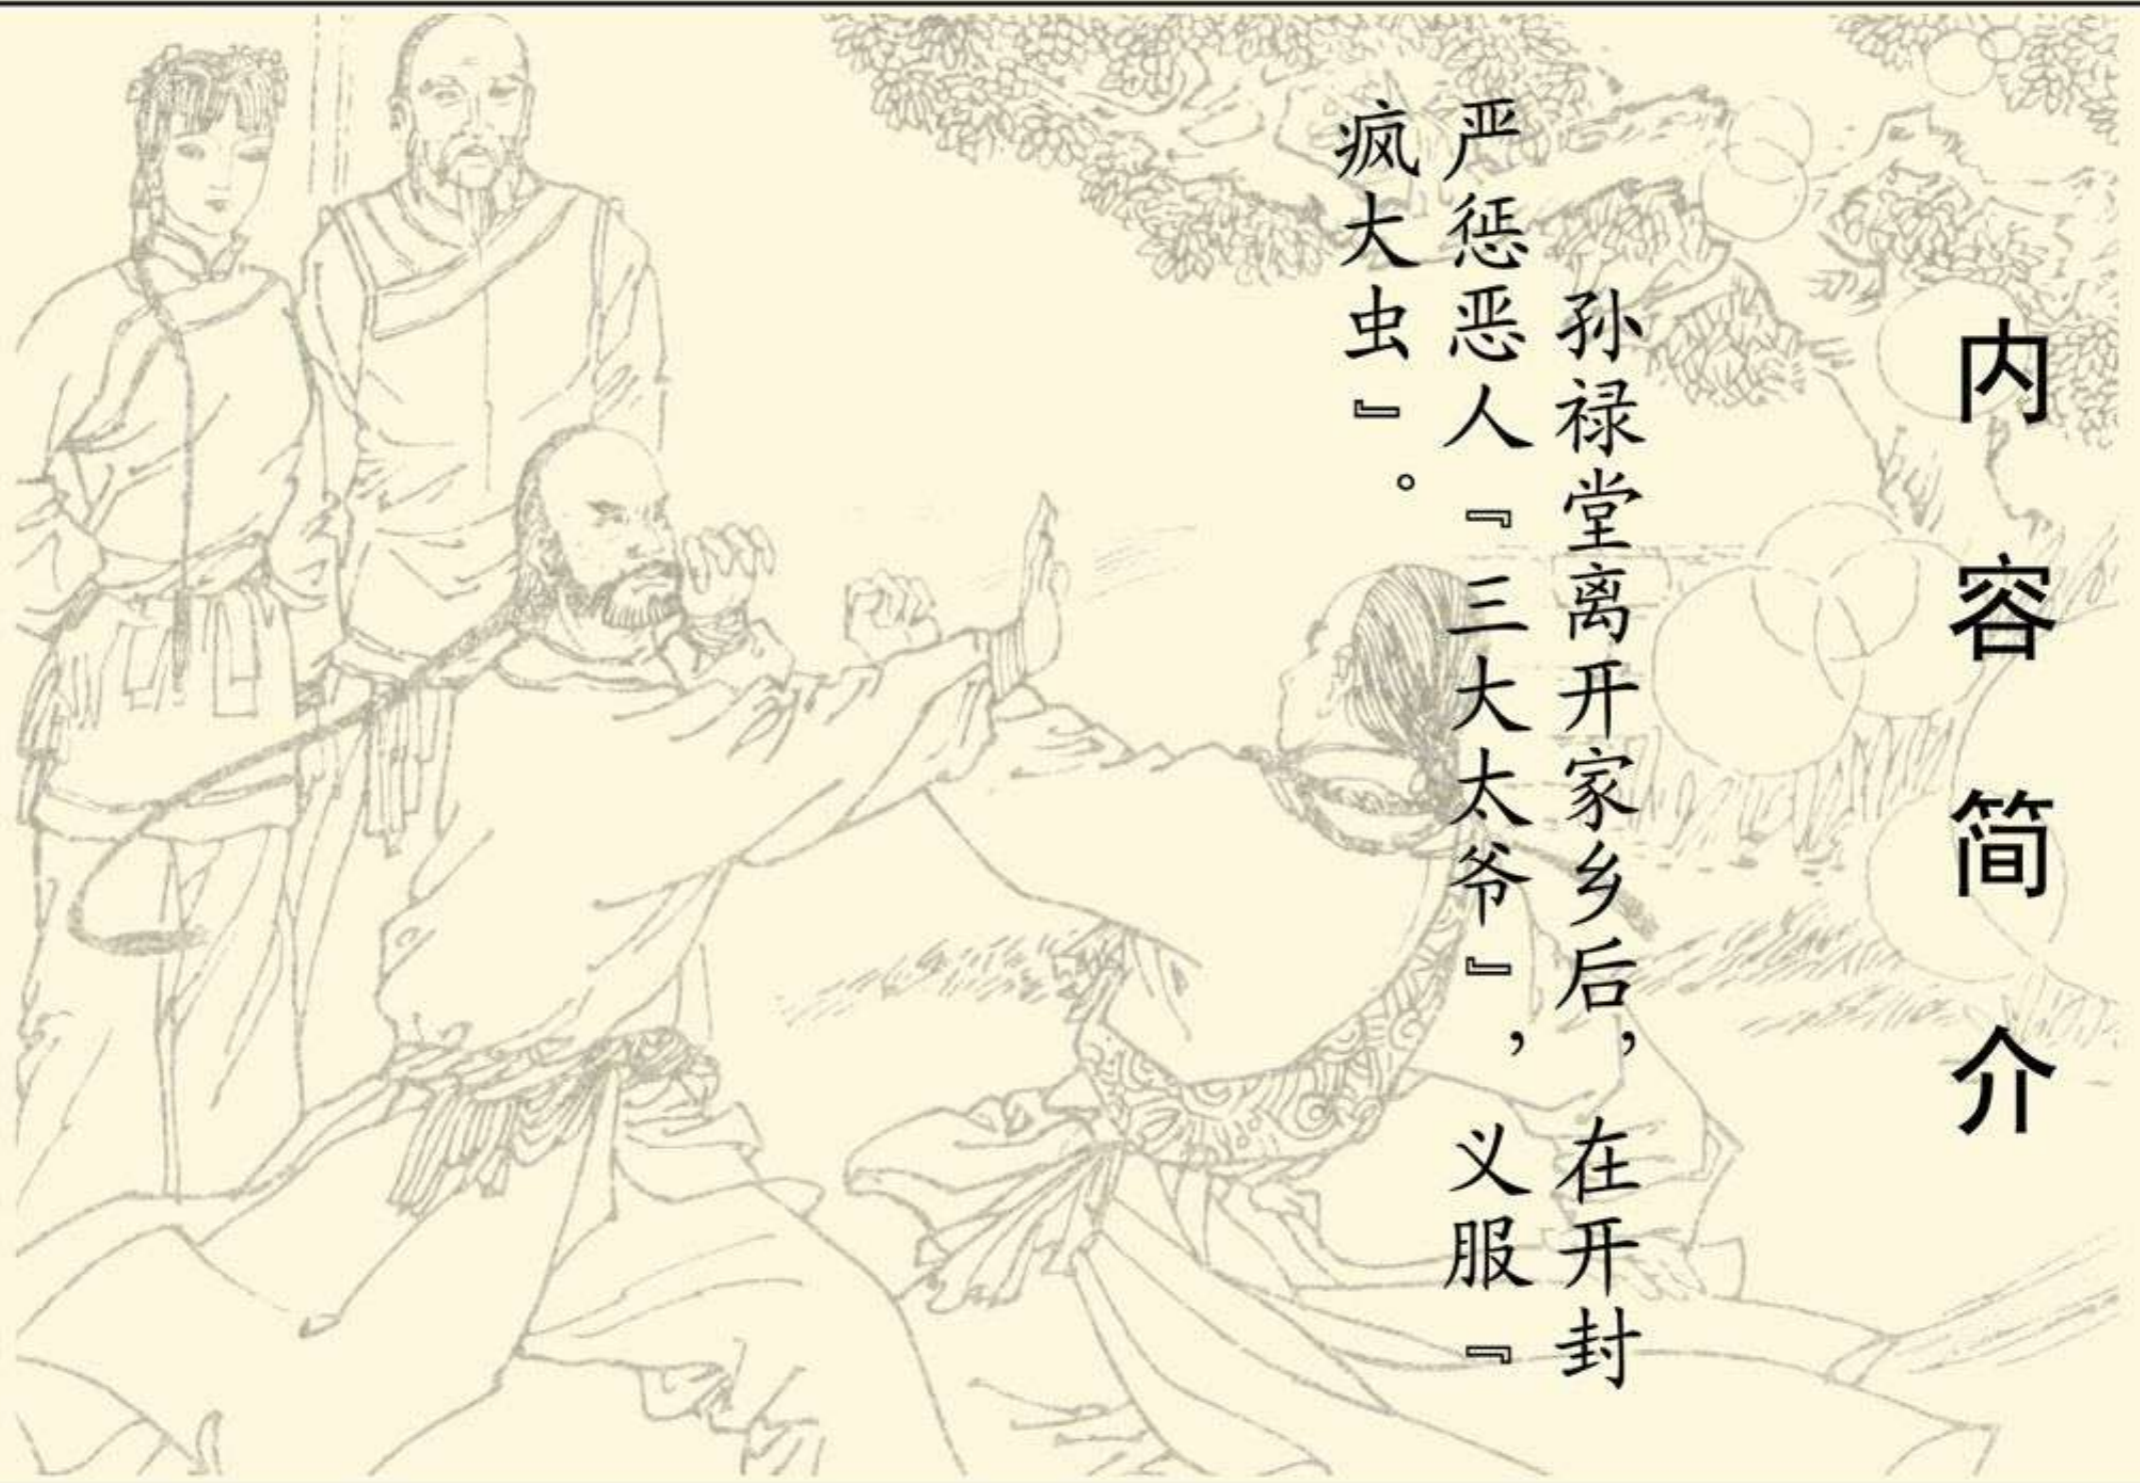 内容简介
孙禄堂离开家乡后，在开封
严惩恶人『三大太爷』，义服『
疯大虫』。